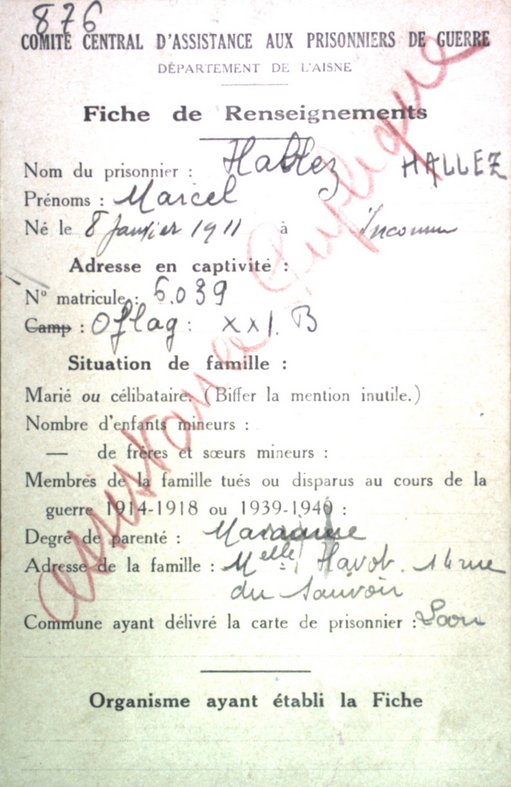 876
COMITÉ CENTRAL D'ASSISTANCE AUX PRISONNIERS DE GUERRE
DÉPARTEMENT DE L'AISNE
Fiche de Renseignements
Nom du prisonnier : Hallez HALLEZ
Prénoms : Marcel
Né le 8 Janvier 1911 à Inconnu
Adresse en captivité :
N° matricule : 6.039
Camp : Oflag : XXI. B
Situation de famille :
Marié ou célibataire. (Biffer la mention inutile.)
Nombre d'enfants mineurs :
— de frères et sœurs mineurs :
Membres de la famille tués ou disparus au cours de la
guerre 1914-1918 ou 1939-1940 :
Degré de parenté : Marraine
Adresse de la famille : Melle Havot. 14 rue
du Sauvoir
Commune ayant délivré la carte de prisonnier : Laon
Organisme ayant établi la Fiche
assistance Publique